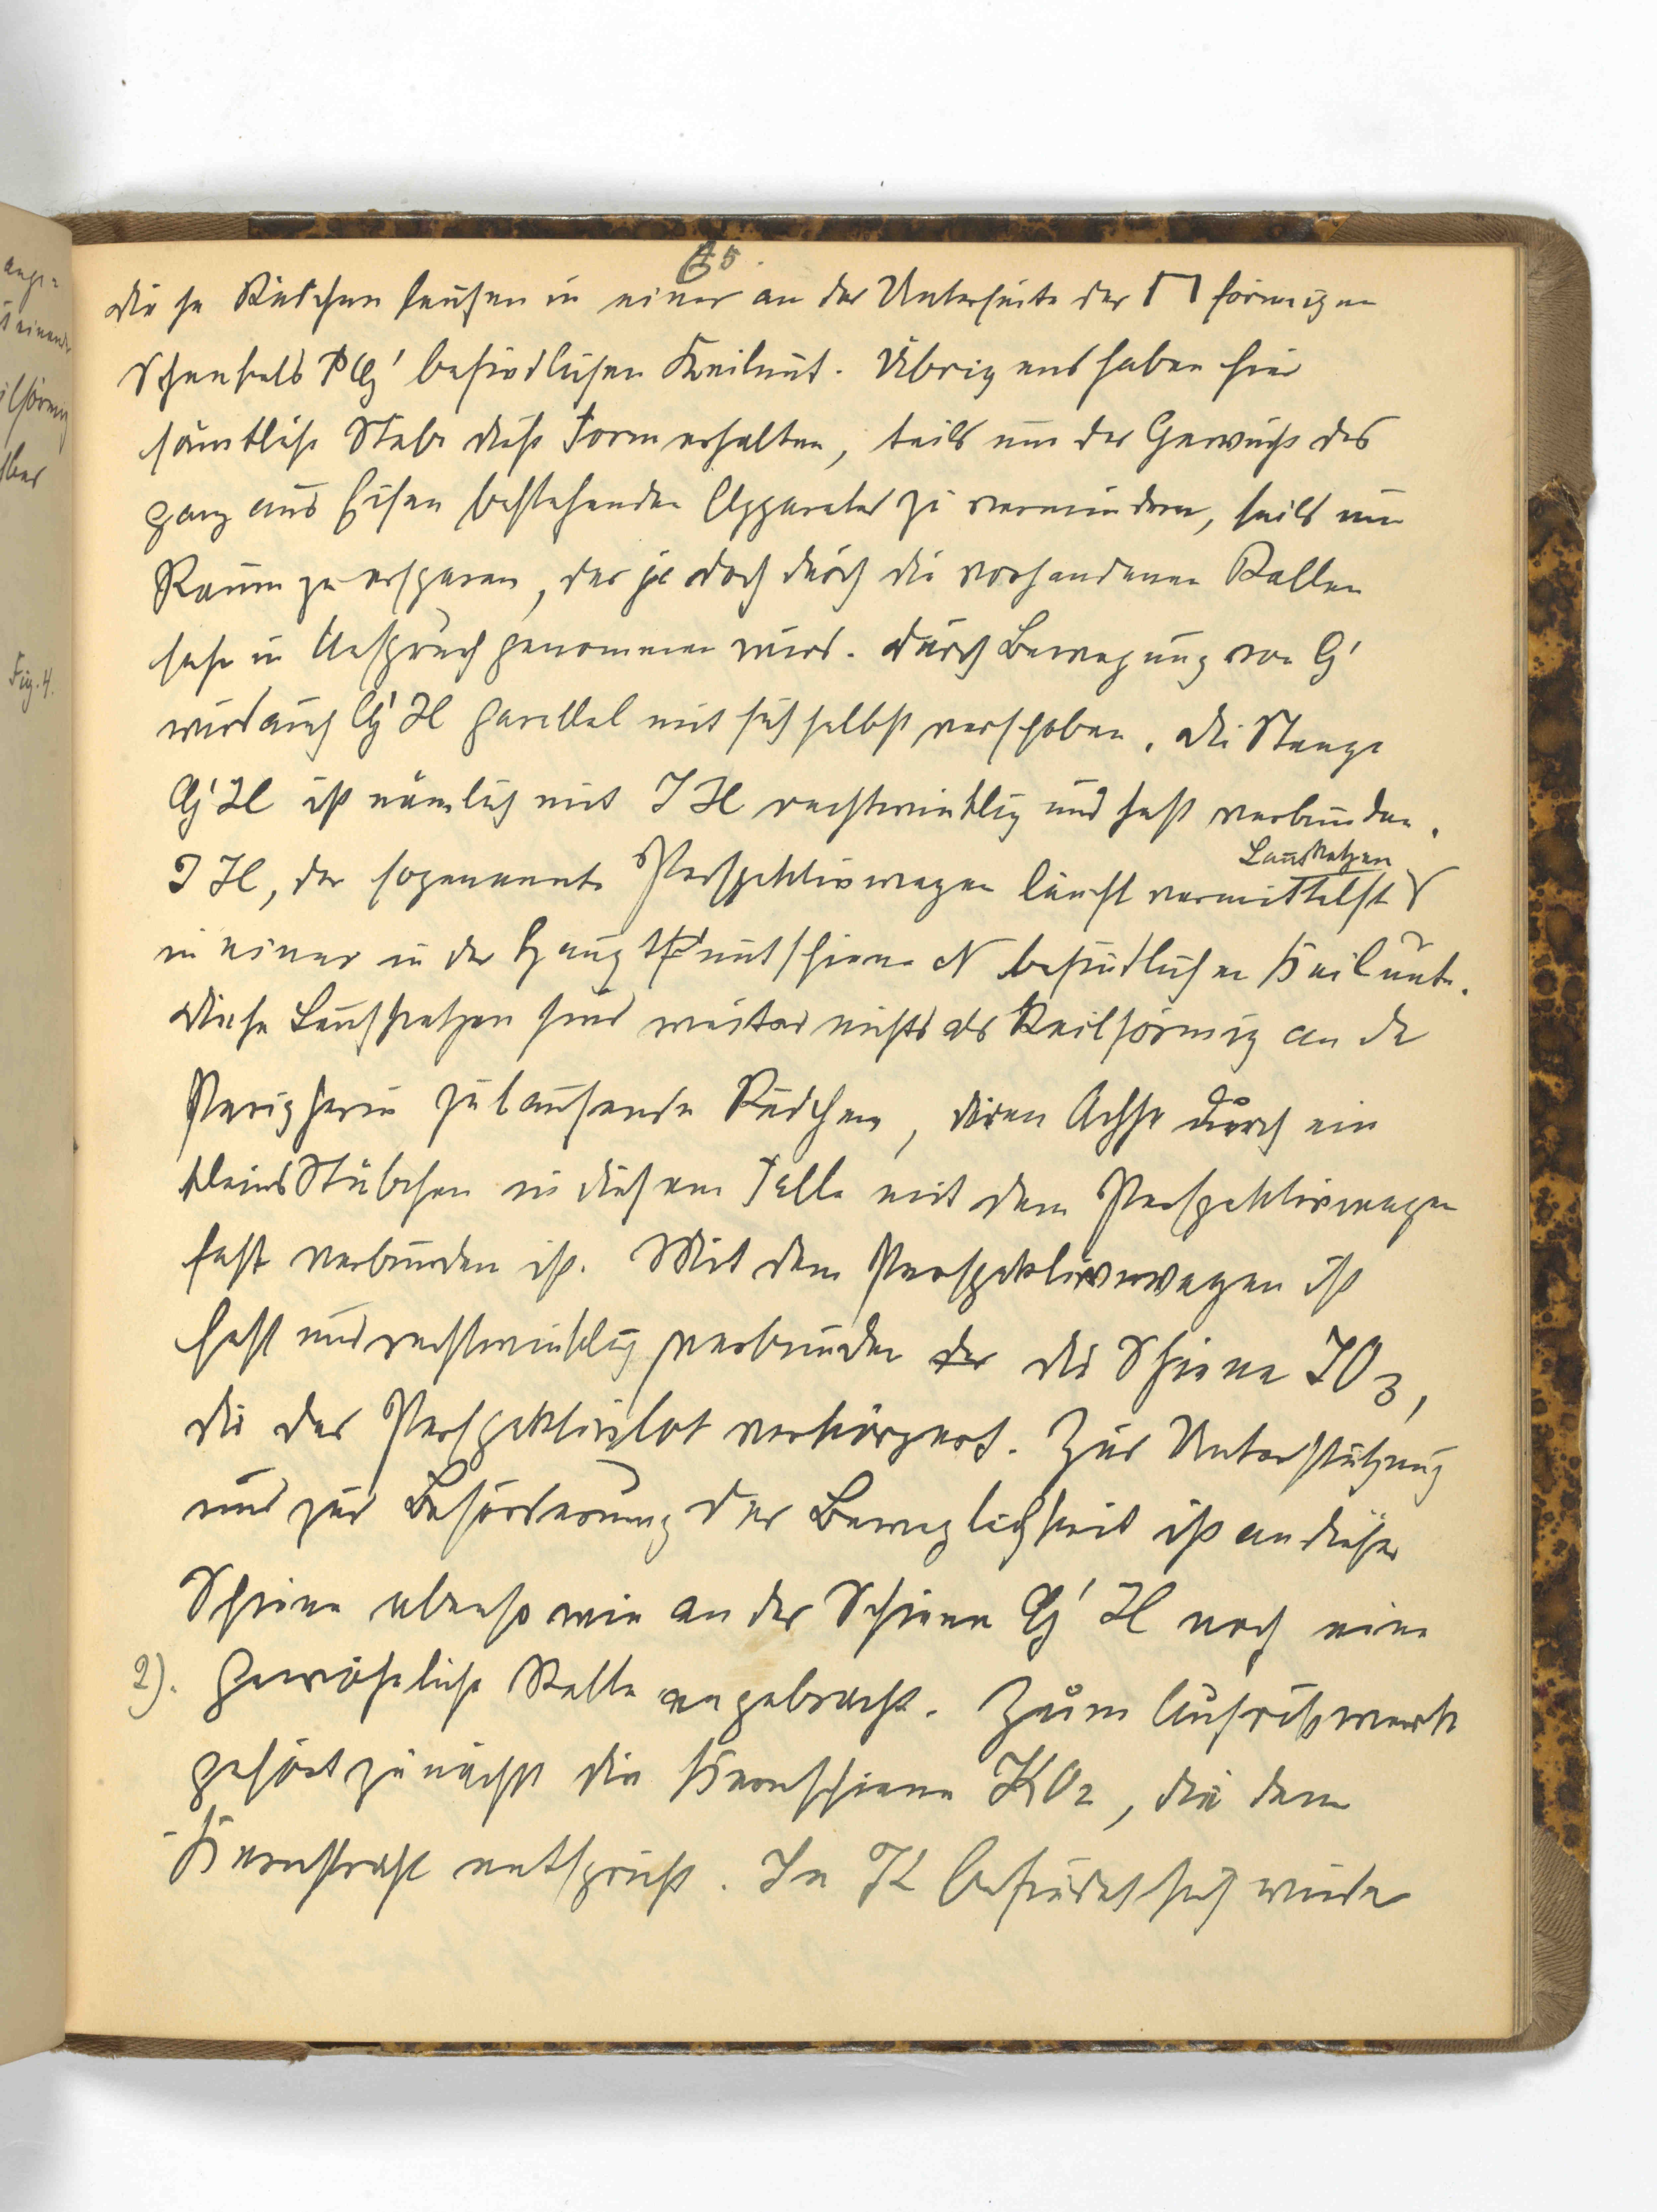 65.
diese Rädchen laufen in einer an der Unterseite der ⊓ förmigen
Schenkels PG' befindlichen Keilnut. Übrigens haben hier
sämtliche Stäbe diese Form erhalten, teils um das Gewicht des
ganz aus Eisen bestehenden Apparates zu vermindern, teils um
Raum zu ersparen, der jedoch durch die vorhandenen Rollen
sehr in Anspruch genommen wird. Durch Bewegung von G'
wird auch G'H parallel mit sich selbst verschoben. Die Stange
G'H ist nämlich mit JH rechtwinklig und fest verbunden.
JH, der sogenannte Perspektivwagen läuft vermittelst Laufkatzen
in einer in der Hauptnutschiene N befindlichen Keilnute.
Diese Laufkatzen sind weiter nichts als Keilförmig an der
Peripherie zulaufende Rädchen, deren Achse durch ein
kleines Stäbchen in diesem Falle mit dem Perspektivwagen
fest verbunden ist. Mit dem Perspektivwagen ist
fest und rechtwinklig verbunden der die Schiene JO3,
die das Perspektivlot verkörpert. Zur Unterstützung
und zur Beförderung der Beweglichkeit ist an dieser
Schiene ebenso wie an der Schiene G'H noch eine
2). gewöhnliche Rolle angebracht. Zum Aufrißwerk
gehört zunächst die Kernschiene KO2, die dem
Kernstrahl entspricht. In K befindet sich wieder
ange-
einander
ilförmig
Fig. 4.